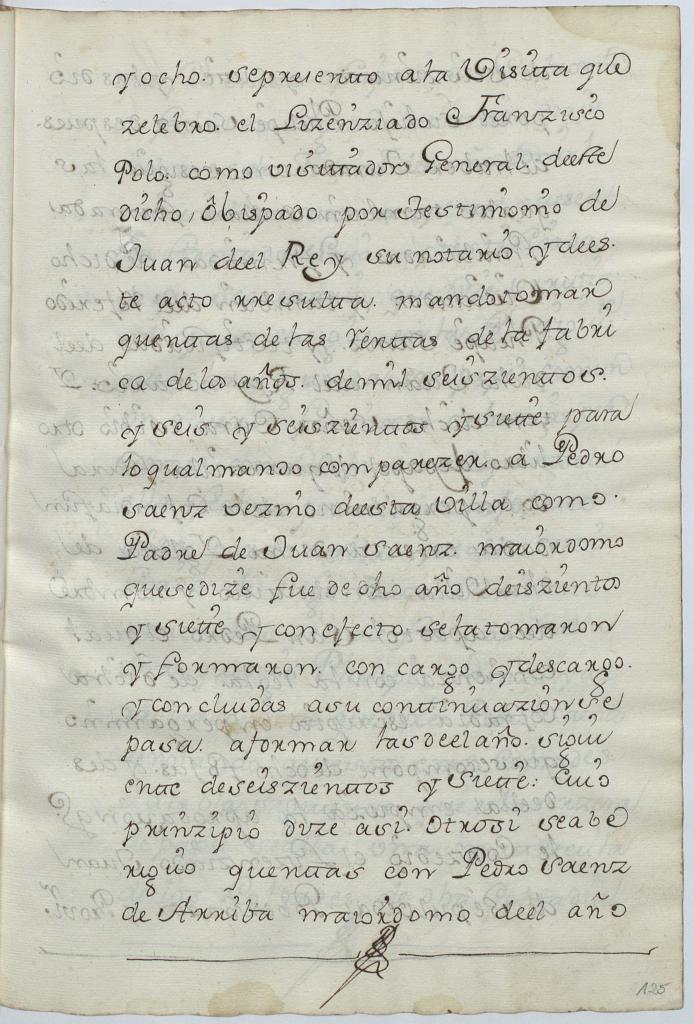 y ocho. se presentto a la Visitta que
zelebro. el Lizenziado Franzisco
Polo. como visittador General. deeste
dicho, Obispado por Testimonio de
Juan deel Rey su notario y dees.
te acto rresultta. mando tomar
quenttas de las Renttas de la fabri
ca de los años. de mil seiszienttos.
y seis y seiszienttos y siette, para
lo qual mando comparezer. a Pedro
saenz vezino deesta Villa como.
Padre de Juan Saenz. maiordomo
que se dize fue de dho año deiszientos
y siette y con efecto se la tomaron
y formaron. con cargo y descargo.
y concluidas a su conttinuazion se
pasa. a formar las deel año. sigui
ente de seiszienttos y siette: Cuio
prinzipio dize asi. Otrosi se abe
riguo quenttas con Pedro Saenz
de Arriba maiordomo deel año
125